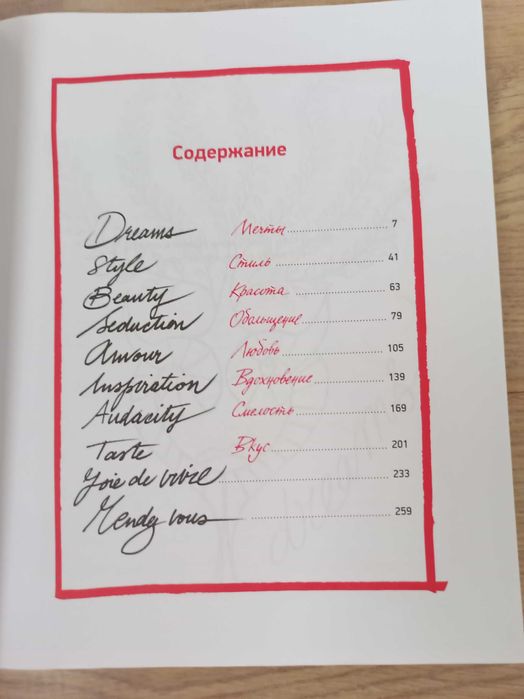 Содержание
Dreams Мечты 7
Style Стиль 41
Beauty Красота 63
Seduction Обольщение 79
Amour Любовь 105
Inspiration Вдохновение 139
Audacity Смелость 169
Taste Вкус 201
Joie de vivre 233
Rendez vous 259